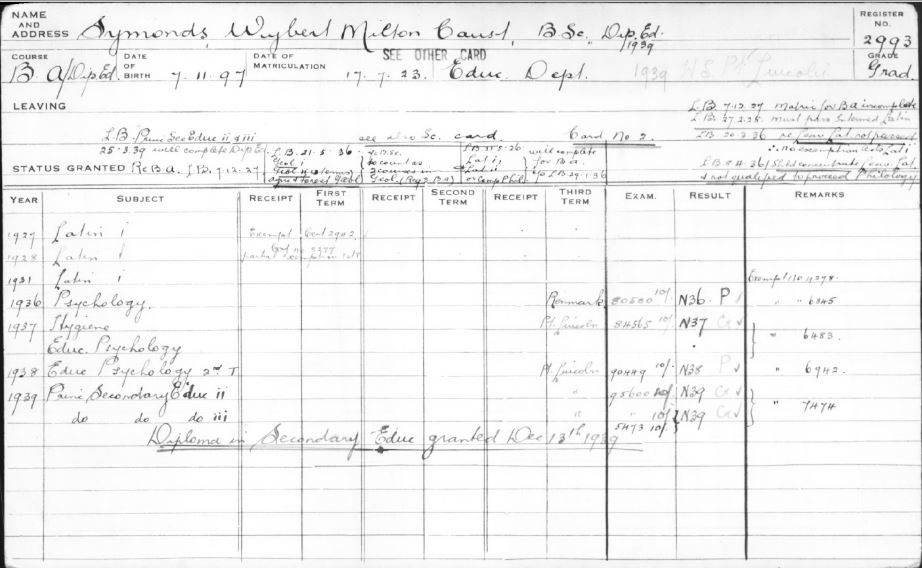 NAME AND ADDRESS Symonds, Wybert Milton Caust, B Sc. Dip. Ed. 1939
REGISTER NO. 2993
SEE OTHER CARD
COURSE B. A/Dip Ed. DATE OF BIRTH 7.11.97 DATE OF MATRICULATION 17.7.23. Educ. Dept. 1939 H.S. Pt. Lincoln GRADE Grad.
LEAVING
L.B. 7.12.27 Matric for B a incomplete
L.B. 27.2.28. must pass Interned Latin
L.B. Princ Sec Educ ii & iii see also Sc. card Card No 2.
25.3.39 will complete Dip Ed.
∴ no exemption as to Lat i
STATUS GRANTED Re B a. L.B. 7.12.27
L.B. 21.5.36
Geol i
to count as
Geol (Reg 3. Ba)
will complete
for B a.
Lat i,
Lat ii
or Comp Phil.
L.B. 29.1.36
& not qualified to proceed Philology
YEAR SUBJECT RECEIPT FIRST TERM RECEIPT SECOND TERM RECEIPT THIRD TERM EXAM. RESULT REMARKS
1927 Latin i Exempt Cert 2942
1928 Latin i
1931 Latin i Exempt No 4278.
1936 Psychology. Renmark 80500 10/- N36. P ✓ " " 6345
1937 Hygiene Pt. Lincoln 84565 10/- N37 Cr ✓
Educ. Psychology " 6483.
1938 Educ Psychology 2nd T Pt. Lincoln 90449 10/- N38 P ✓ " 6942.
1939 Princ Secondary Educ ii " 95600 10/- N39 Cr ✓
do do do iii " 10/- N39 Cr ✓ " 7474
5473 10/-
Diploma in Secondary Educ granted Dec 13th 1939